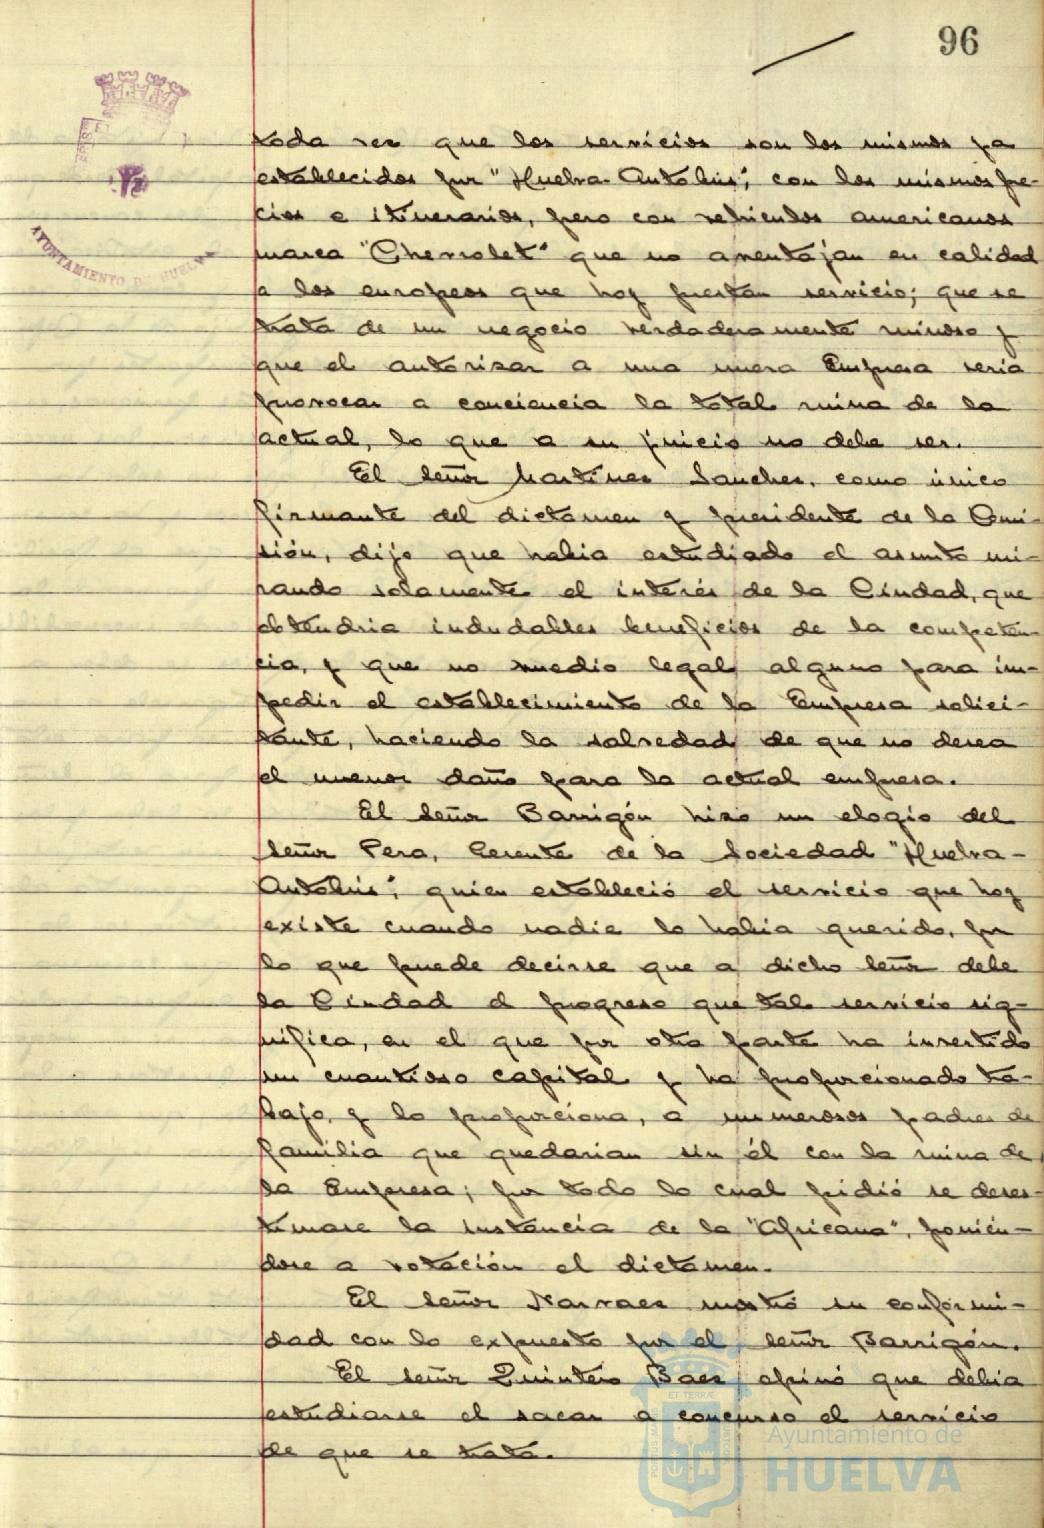 96
AYUNTAMIENTO DE HUELVA
toda vez que los servicios son los mismos ya
establecidos por "Huelva-Autobús", con los mismos pre-
cios e itinerarios, pero con vehiculos americanos
marca "Chevrolet" que no aventajan en calidad
a los europeos que hoy prestan servicio; que se
trata de un negocio verdaderamente ruinoso y
que el autorizar a una nueva Empresa seria
provocar a conciencia la total ruina de la
actual, lo que a su juicio no debe ser.
El señor Martínez Sanchez, como único
firmante del dictamen y presidente de la Comi-
sión, dijo que habia estudiado el asunto mi-
rando solamente el interés de la Ciudad, que
obtendria indudables beneficios de la competen-
cia, y que no medio legal alguno para im-
pedir el establecimiento de la Empresa solici-
tante, haciendo la salvedad de que no desea
el menor daño para la actual empresa.
El señor Barrigón hizo un elogio del
señor Pera, Gerente de la Sociedad "Huelva-
Autobús", quien estableció el servicio que hoy
existe cuando nadie lo habia querido, por
lo que puede decirse que a dicho señor debe
la Ciudad el progreso que tal servicio sig-
nifica, en el que por otra parte ha invertido
un cuantioso capital y ha proporcionado tra-
bajo, y lo proporciona, a numerosos padres de
familia que quedarian sin él con la ruina de
la Empresa; por todo lo cual pidió se deses-
timase la instancia de la "Africana", ponién-
dose a votación el dictamen.
El señor Narvaez mostró su conformi-
dad con lo expuesto por el señor Barrigón.
El señor Quintero Baez opinó que debia
estudiarse el sacar a concurso el servicio
de que se trata.
Ayuntamiento de
HUELVA